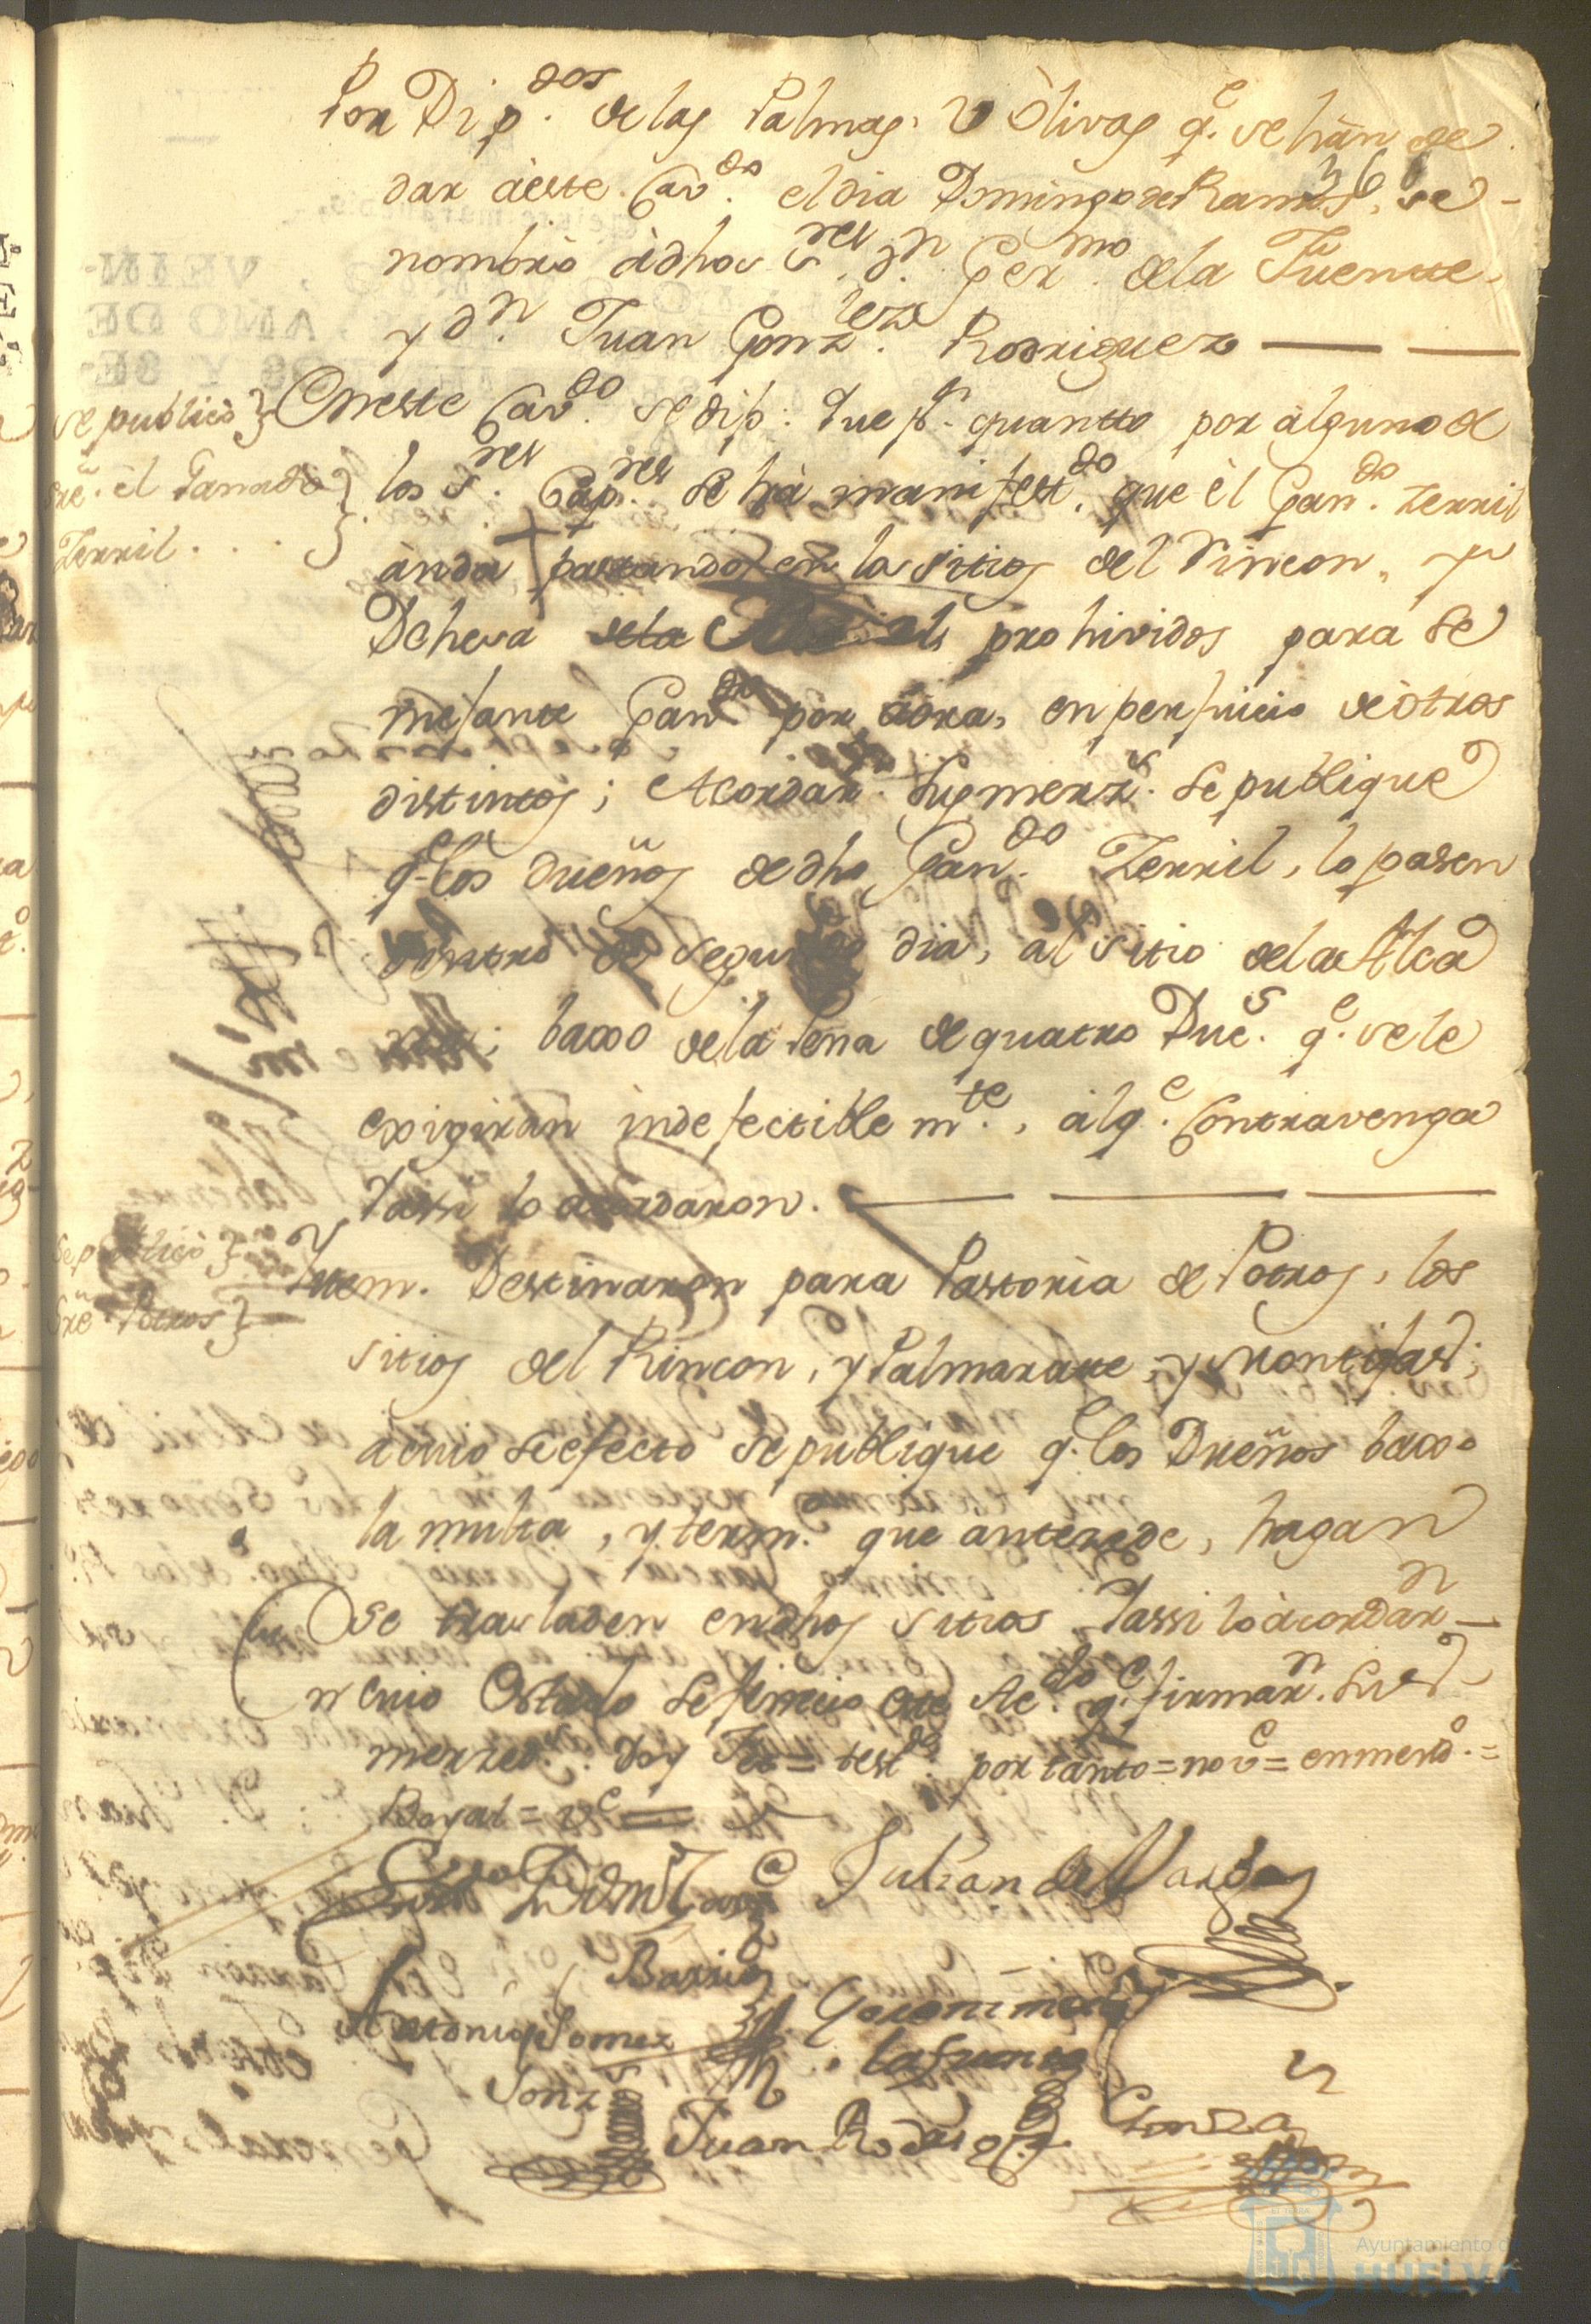 Por Dip.dos de las Palmas, u Olivas q.e se hàn de
36
dar àeste Cav.do el dia Domingo de Ramos, se
nombrò àdhos S.res D.n Ger.mo dela Fuente,
y d.n Juan Gonz.lez Rodriguez
se publicò
sre. èl Ganado
Zerril . . .
Eneste Cav.do se dip: Que p.r quantto por alguno de
los S.res Cap.res se hà manifest.do que èl Gan.do Zerril
ànda pastando en los sitios del Rincon, y
Dehesa dela prohividos para se
mejante Gan.do por àora, en perjuicio de òtros
distintos; Acordar.n sus merz.s se publique
q.e los dueños de dho Gan.do Zerril, lo pasen
dentro de segundo dia, àl sitio dela Alca
; baxo dela Pena de quatro Duc.s q.e se le
exigiràn indefectiblem.te, àlq.e Contravenga
Yassi lo acordaron.
Se publicò
sre Potros
Ytem. Destinaron para Pastorìa de Potros, los
sitios del Rincon, y Palmarete, y
àcuio seefecto se publique q.e los Dueños baxo
la multa, y term.o que antezede, hagan
se trasladen en dhos sitios Yassi lo àcordar.n
n cuio Estado se feneciò este Ac.do q.e firmar.n sus
merzed.s Doy Fee = test.do por tanto = nov.e = enmend.o =
Bogal = v.e
Julian de Vargas
Barrios
Antonio Gomez
Geronimo de
la fuente
Gonz.s
Juan Rodrig.z
Gonza
Ayuntamiento de
HUELVA